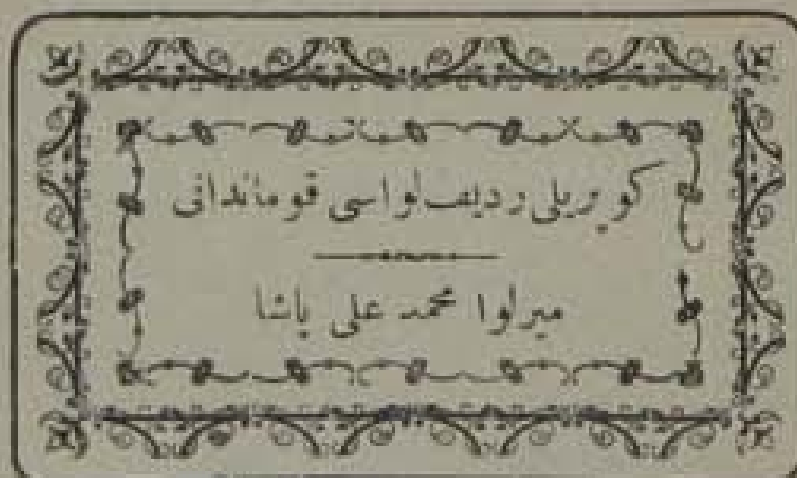 كوپریلی ردیف لواسی قوماندانی
میرلوا محمد علی پاشا